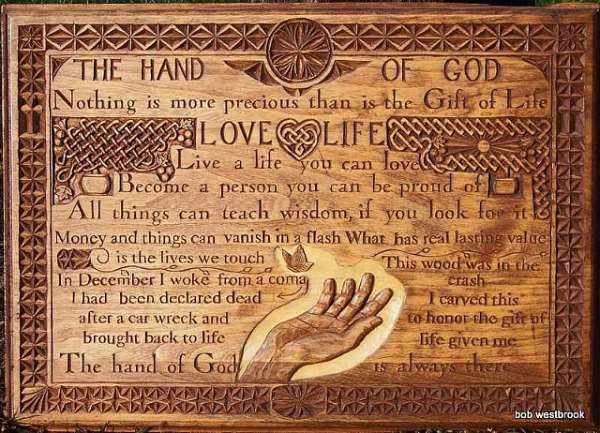 THE HAND OF GOD
Nothing is more precious than is the Gift of Life
LOVE LIFE
Live a life you can love
Become a person you can be proud of
All things can teach wisdom, if you look for it
Money and things can vanish in a flash What has real lasting value
is the lives we touch
In December I woke from a coma
I had been declared dead
after a car wreck and
brought back to life
This wood was in the
crash
I carved this
to honor the gift of
life given me
The hand of God is always there
bob westbrook